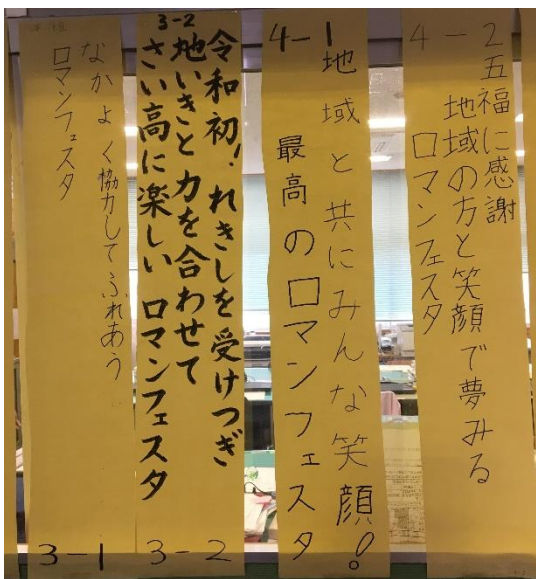 4-2
五福に感謝
地域の方と笑顔で夢みる
ロマンフェスタ
4-1
地域と共にみんな笑顔!
最高のロマンフェスタ
3-2
令和初!れきしを受けつぎ
地いきと力を合わせて
さい高に楽しいロマンフェスタ
3-2
なかよく協力してふれあう
ロマンフェスタ
3-1